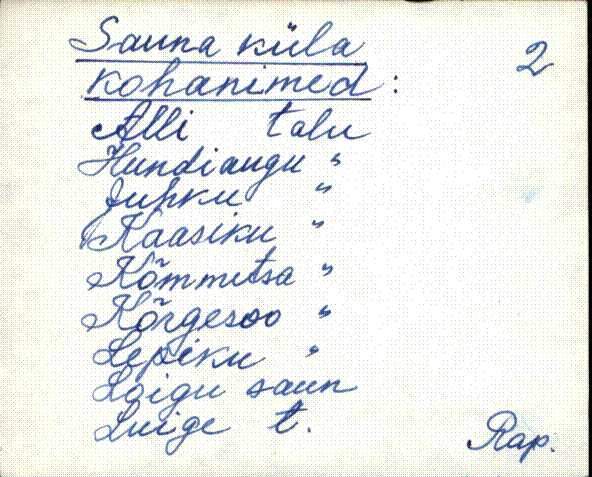 Sauna küla 2
kohanimed:
Alli talu
Hundiaugu "
Juhku "
Kaasiku "
Kõmmetsa "
Kõrgesoo "
Lepiku "
Loigu saun
Luige t.
Rap.